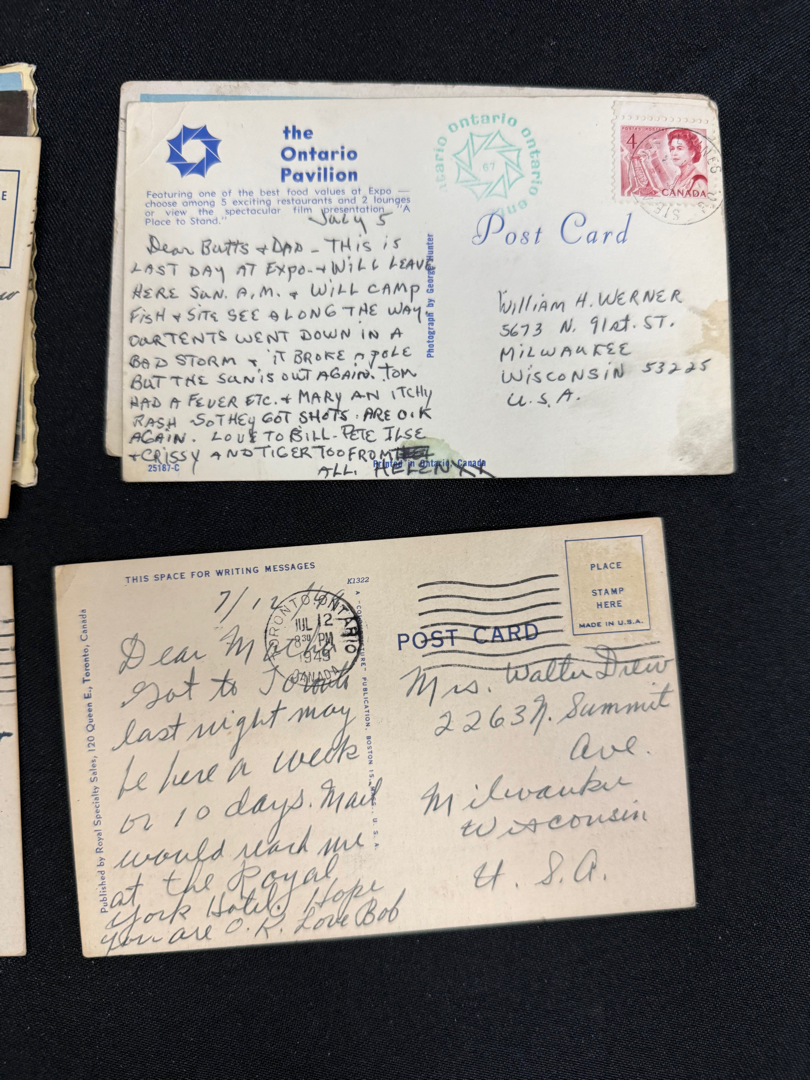 the
Ontario
Pavilion
Featuring one of the best food values at Expo —
choose among 5 exciting restaurants and 2 lounges
or view the spectacular film presentation "A
Place to Stand."
July 5
Dear Butts & DAD - THIS IS
LAST DAY AT EXPO - & WILL LEAVE
HERE SUN. A.M. & WILL CAMP
FISH & SITE SEE ALONG THE WAY
OUR TENTS WENT DOWN IN A
BAD STORM & IT BROKE A POLE
BUT THE SUN IS OUT AGAIN. TOM
HAD A FEVER ETC. & MARY AN ITCHY
RASH SO THEY GOT SHOTS. ARE O.K
AGAIN. LOVE TO BILL - PETE ILSE
& CRISSY AND TIGER TOO FROM
ALL. HELEN
25187-C
Printed in Ontario, Canada
Photograph by George Hunter
ontario ontario ontario
67
4
CANADA
Post Card
WILLIAM H. WERNER
5673 N. 91st. ST.
MILWAUKEE
WISCONSIN 53225
U.S.A.
THIS SPACE FOR WRITING MESSAGES
K1322
7/12/49
TORONTO ONTARIO
JUL 12
8 30 PM
1949
CANADA
Dear
Got to Toronto
last night may
be here a week
or 10 days. Mail
would reach me
at the Royal
York Hotel. Hope
you are O.K. Love Bob
Published by Royal Specialty Sales, 120 Queen E., Toronto, Canada
PUBLICATION, BOSTON 15, MASS., U. S. A.
POST CARD
PLACE
STAMP
HERE
MADE IN U.S.A.
Mrs. Walter Drew
2263 N. Summit
Ave.
Milwaukee
Wisconsin
U. S. A.